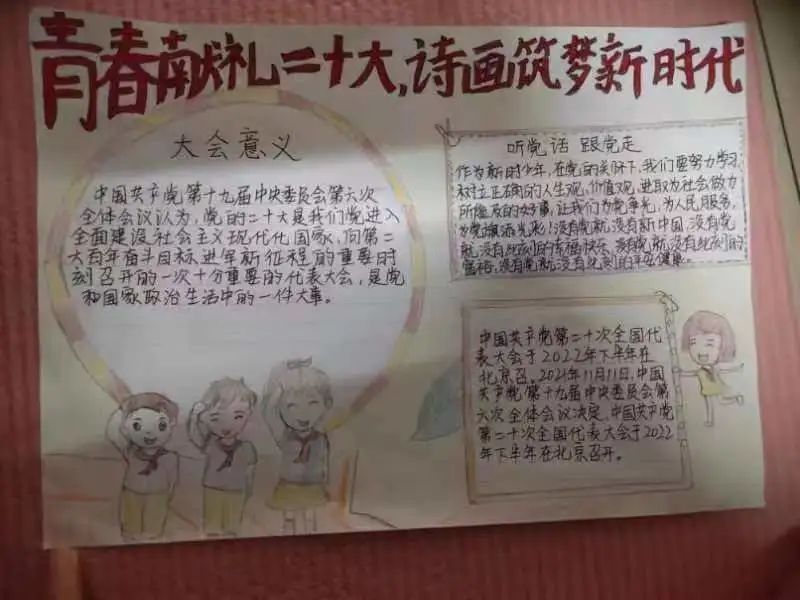 青春献礼二十大,诗画筑梦新时代
大会意义
中国共产党第十九届中央委员会第六次
全体会议认为,党的二十大是我们党进入
全面建设社会主义现代化国家、向第二
大百年奋斗目标进军新征程的重要时
刻召开的一次十分重要的代表大会,是党
和国家政治生活中的一件大事。
听党话 跟党走
作为新时少年,在党的关怀下,我们要努力学习,
树立正确的人生观,价值观,进取为社会做力
所能及的好事,让我们为党争光,为人民服务,
为党旗添光彩!没有党,就没有新中国,没有党
就,没有此刻的幸福快乐,没有党,就没有此刻的
富裕,没有党就没有此刻的平安健康。
中国共产党第二十次全国代
表大会于2022年下半年在
北京召。2021年11月11日,中国
共产党第十九届中央委员会第
六次全体会议决定,中国共产党
第二十次全国代表大会于2022
年下半年在北京召开。